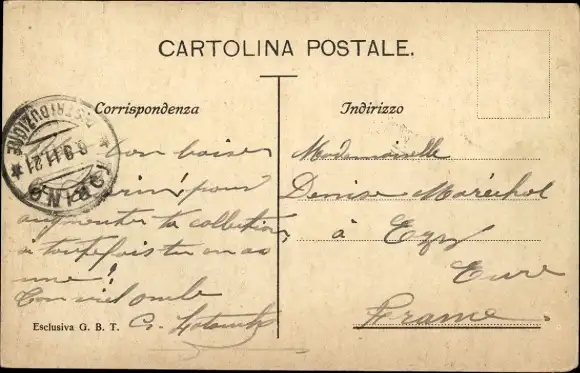 CARTOLINA POSTALE.
Corrispondenza
Indirizzo
TORINO
DISTRIBUZIONE
on baiser
pour
augmenter ta collection
si toutefois tu en as
une!
Ton vieil oncle
G.
Esclusiva G. B. T.
Mademoiselle
Denise Maréchal
à Ezy
Eure
France.